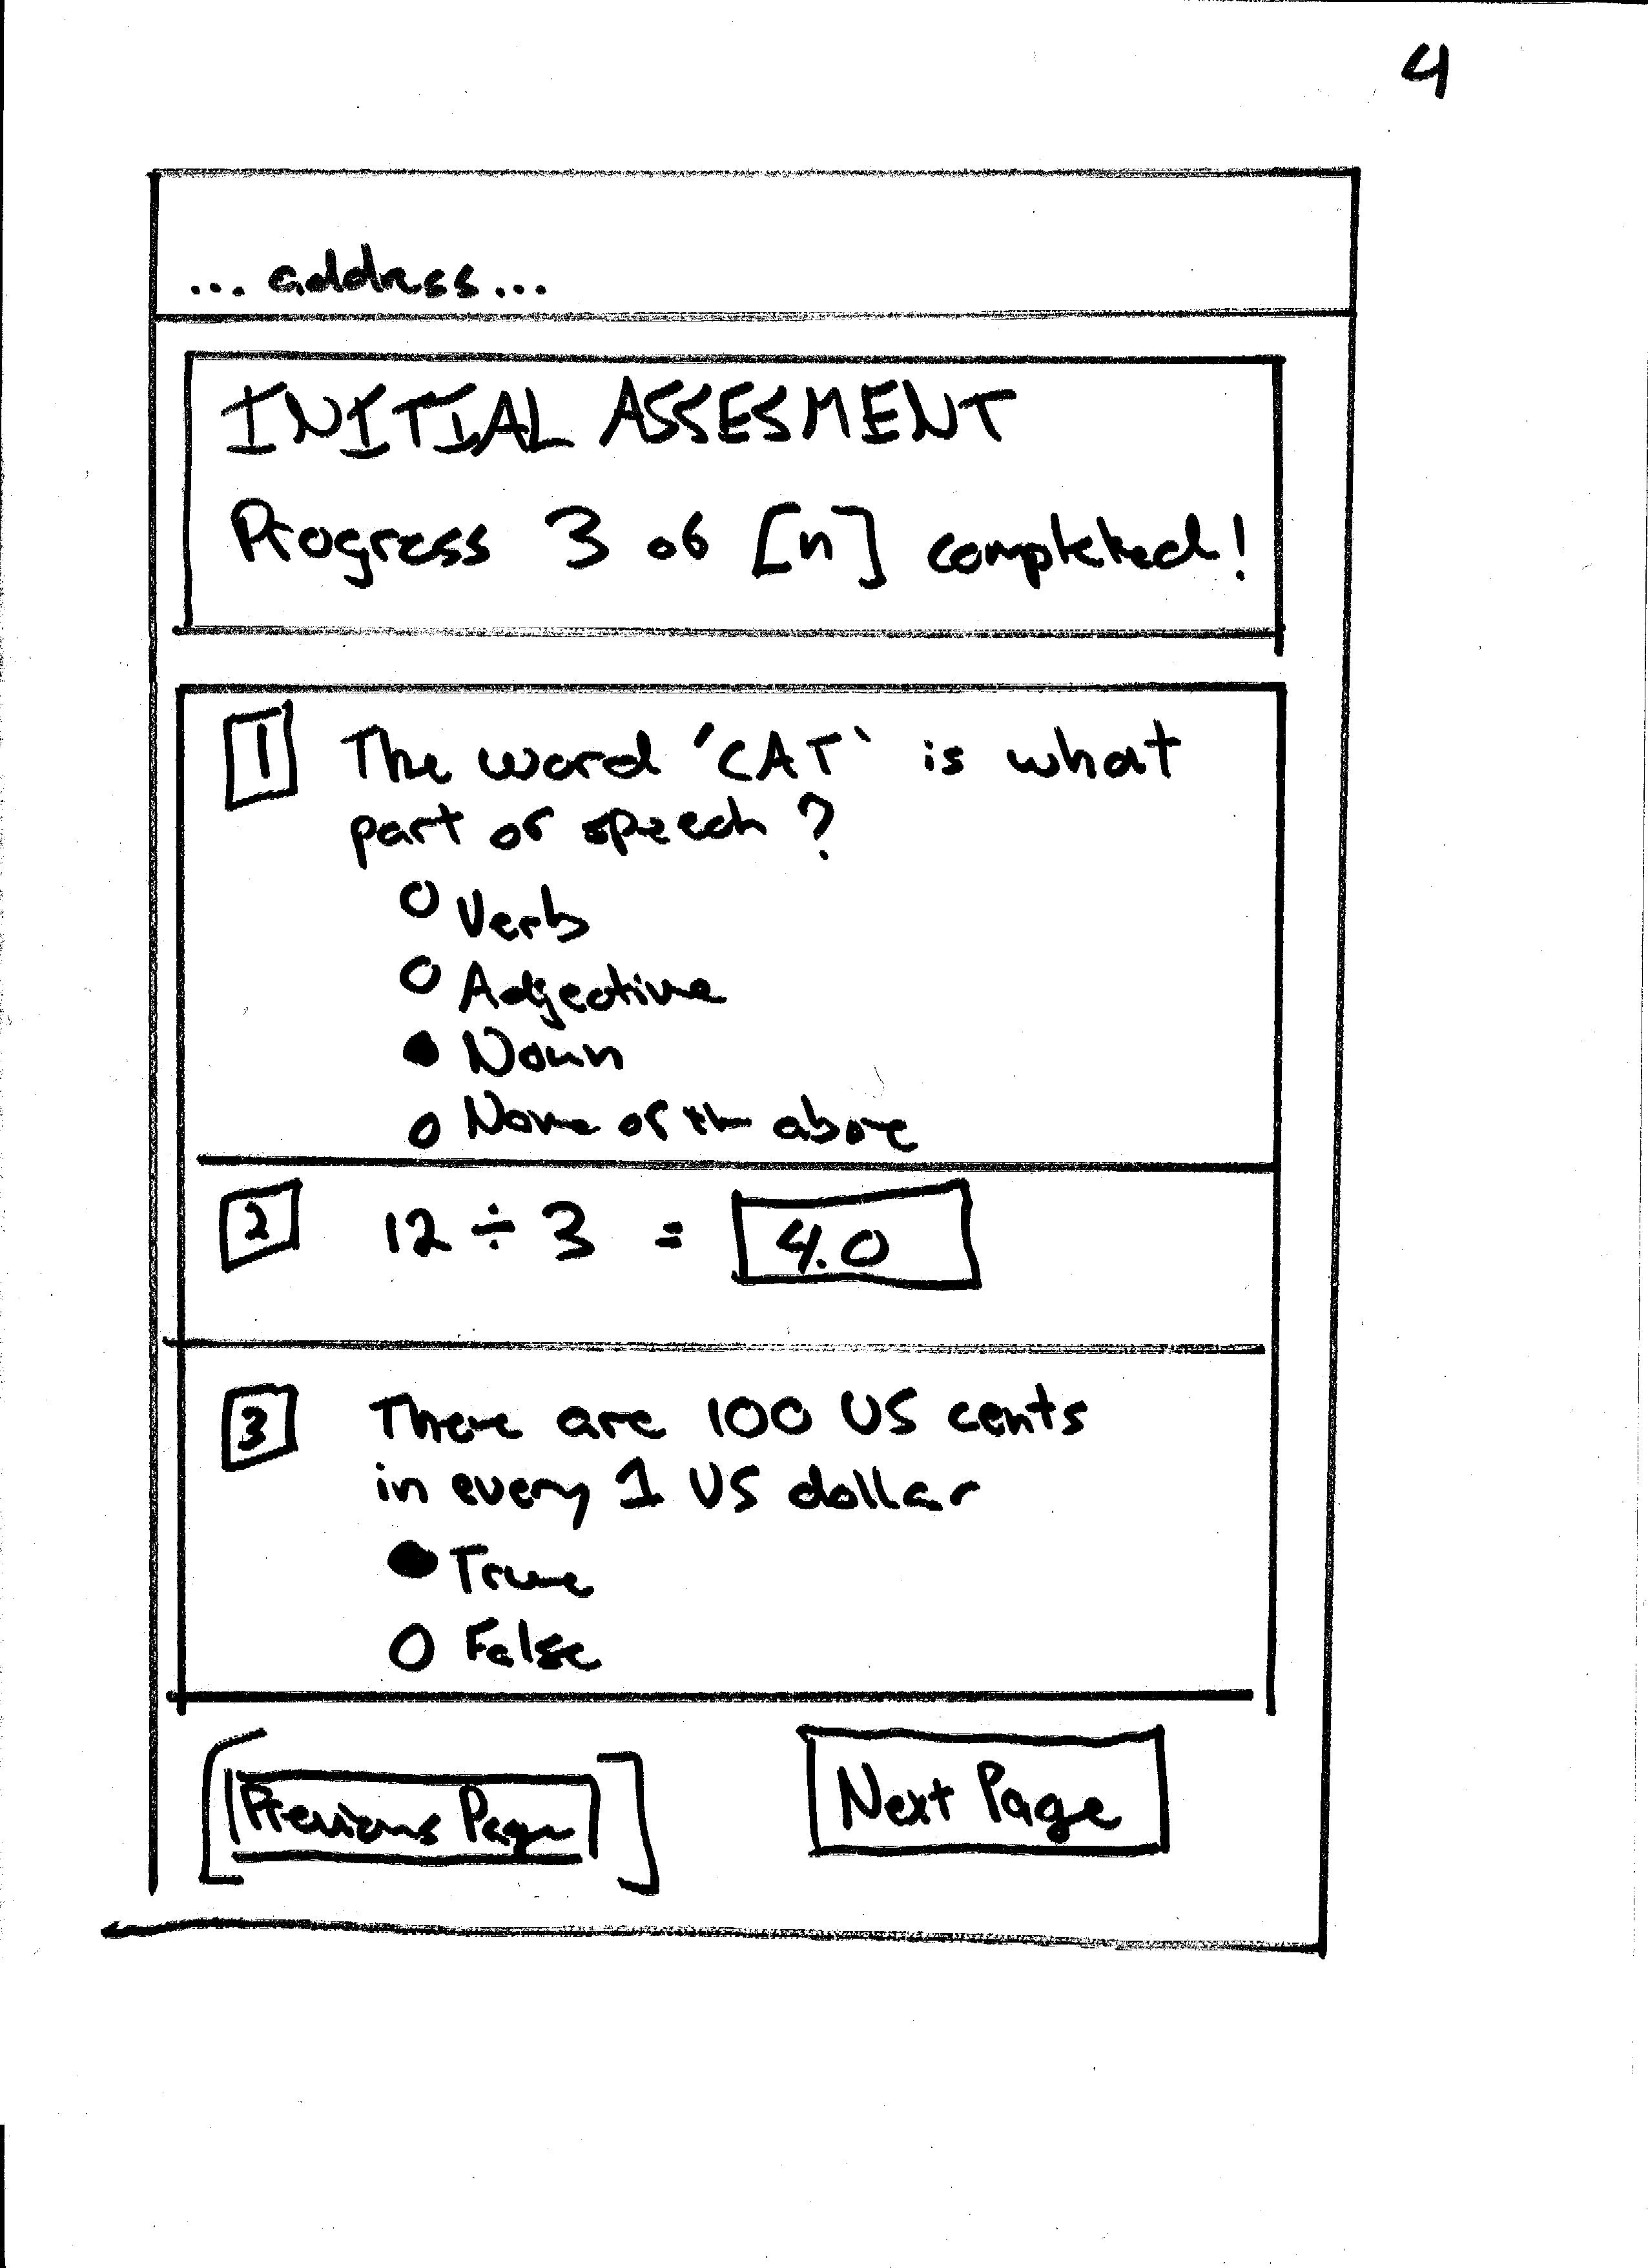 4
... address ...
INITIAL ASSESMENT
Progress 3 of [n] completed!
1 The word 'CAT' is what
part of speech?
Verb
Adjective
Noun
None of the above
2 12 ÷ 3 = 4.0
3 There are 100 US cents
in every 1 US dollar
True
False
[Previous Page] Next Page